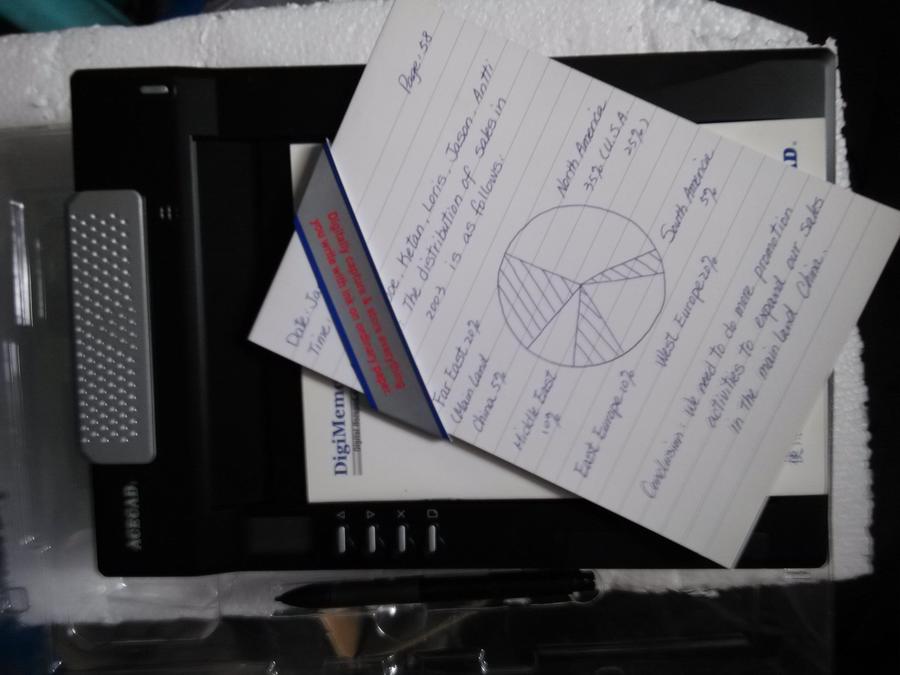 Page: 58
Date: Ja
Time
oe. Ketan. Loris. Jason. Antti
The distribution of sales in
2003 is as follows:
North America
35% (U.S.A.
25%)
South America
5%
West Europe 20%
East Europe 10%
Middle East
10%
Far East 20%
(Mainland
China 5%
Conclusion: We need to do more promotion
activities to expand our sales
in the mainland China.
Digitally capture & store everything
you write with ink on ordinary paper
DigiMem
ACECAD